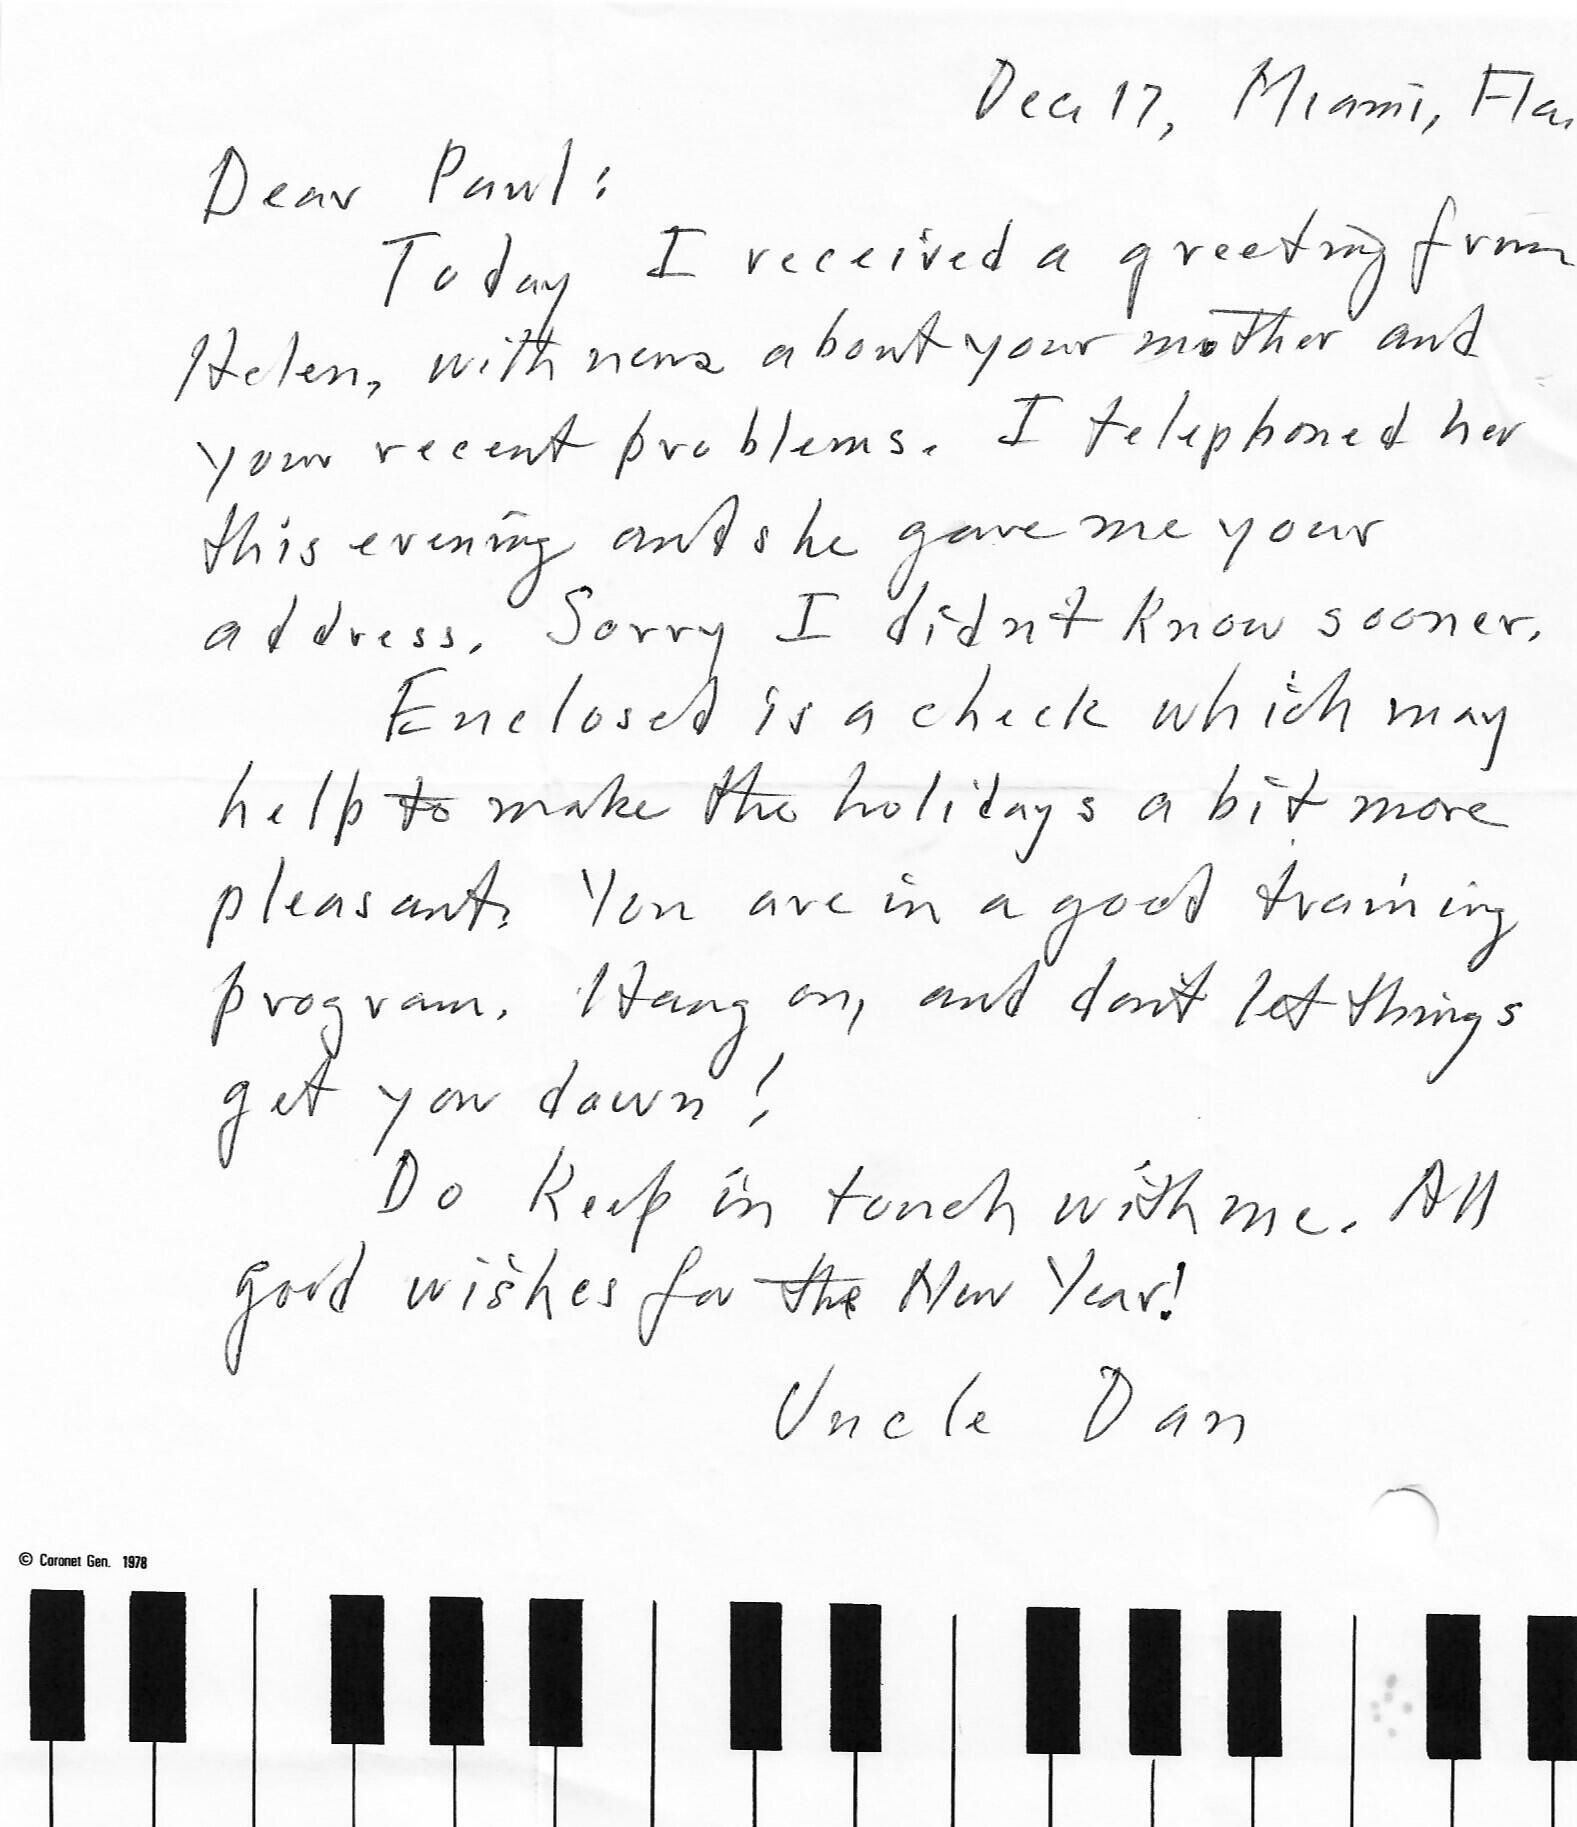 Dec. 17, Miami, Fla.
Dear Paul:
Today I received a greeting from
Helen, with news about your mother and
your recent problems. I telephoned her
this evening and she gave me your
address. Sorry I didn't know sooner.
Enclosed is a check which may
help to make the holidays a bit more
pleasant. You are in a good training
program. Hang on, and don't let things
get you down!
Do keep in touch with me. All
good wishes for the New Year!
Uncle Dan
© Coronet Gen. 1978